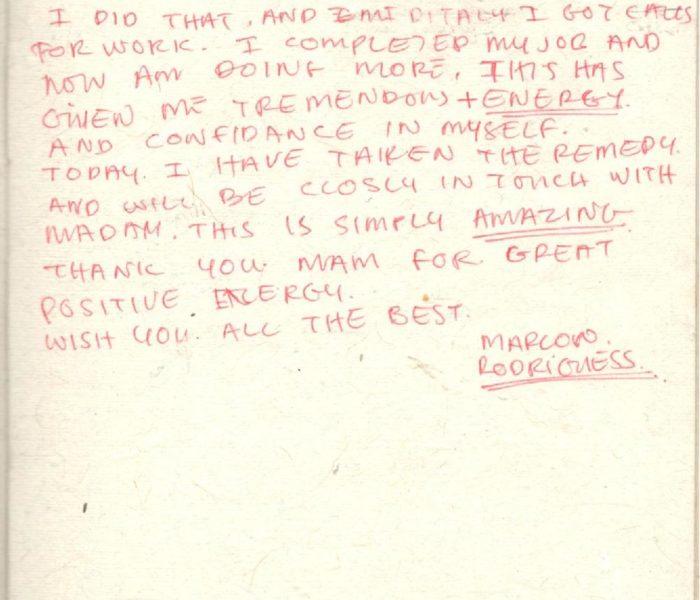 I DID THAT. AND IMMIDITALY I GOT CALLS
FOR WORK. I COMPLETED MY JOB AND
NOW AM DOING MORE. THIS HAS
GIVEN ME TREMENDOUS + ENERGY.
AND CONFIDANCE IN MYSELF.
TODAY. I HAVE TAIKEN THE REMEDY.
AND WILL BE CLOSLY IN TOUCH WITH
MADAM. THIS IS SIMPLY AMAZING
THANK YOU. MAM FOR GREAT
POSITIVE ENERGY.
WISH YOU. ALL THE BEST.
MARCOW.
RODRIGUESS.